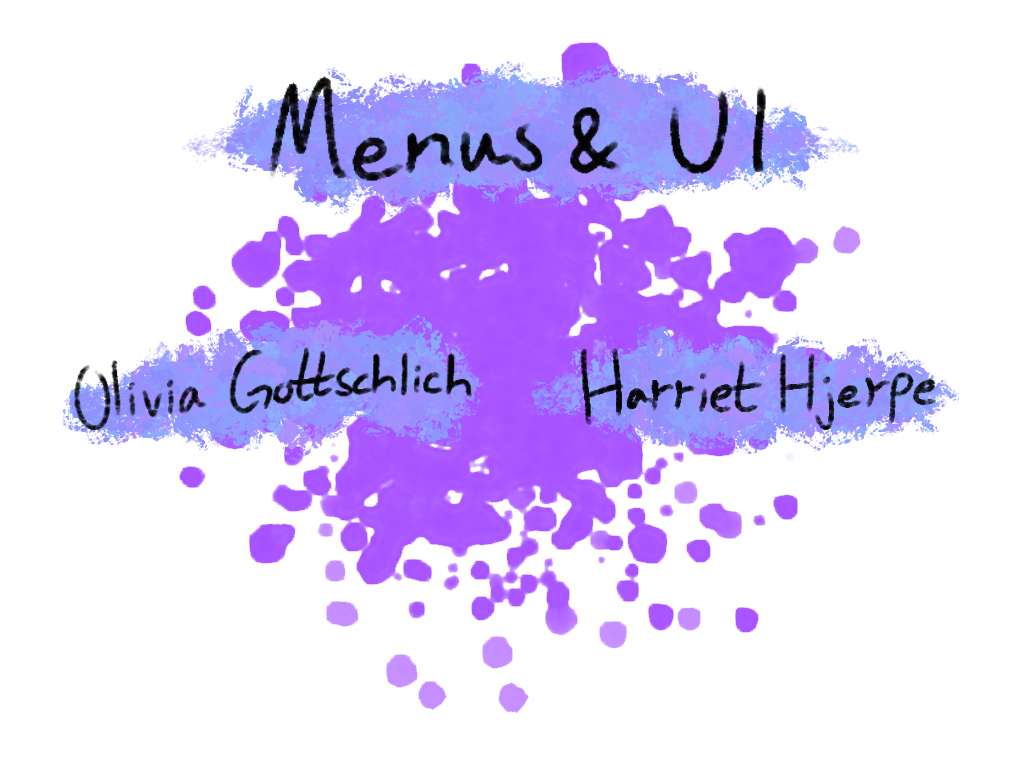 Menus & UI
Olivia Gottschlich
Harriet Hjerpe